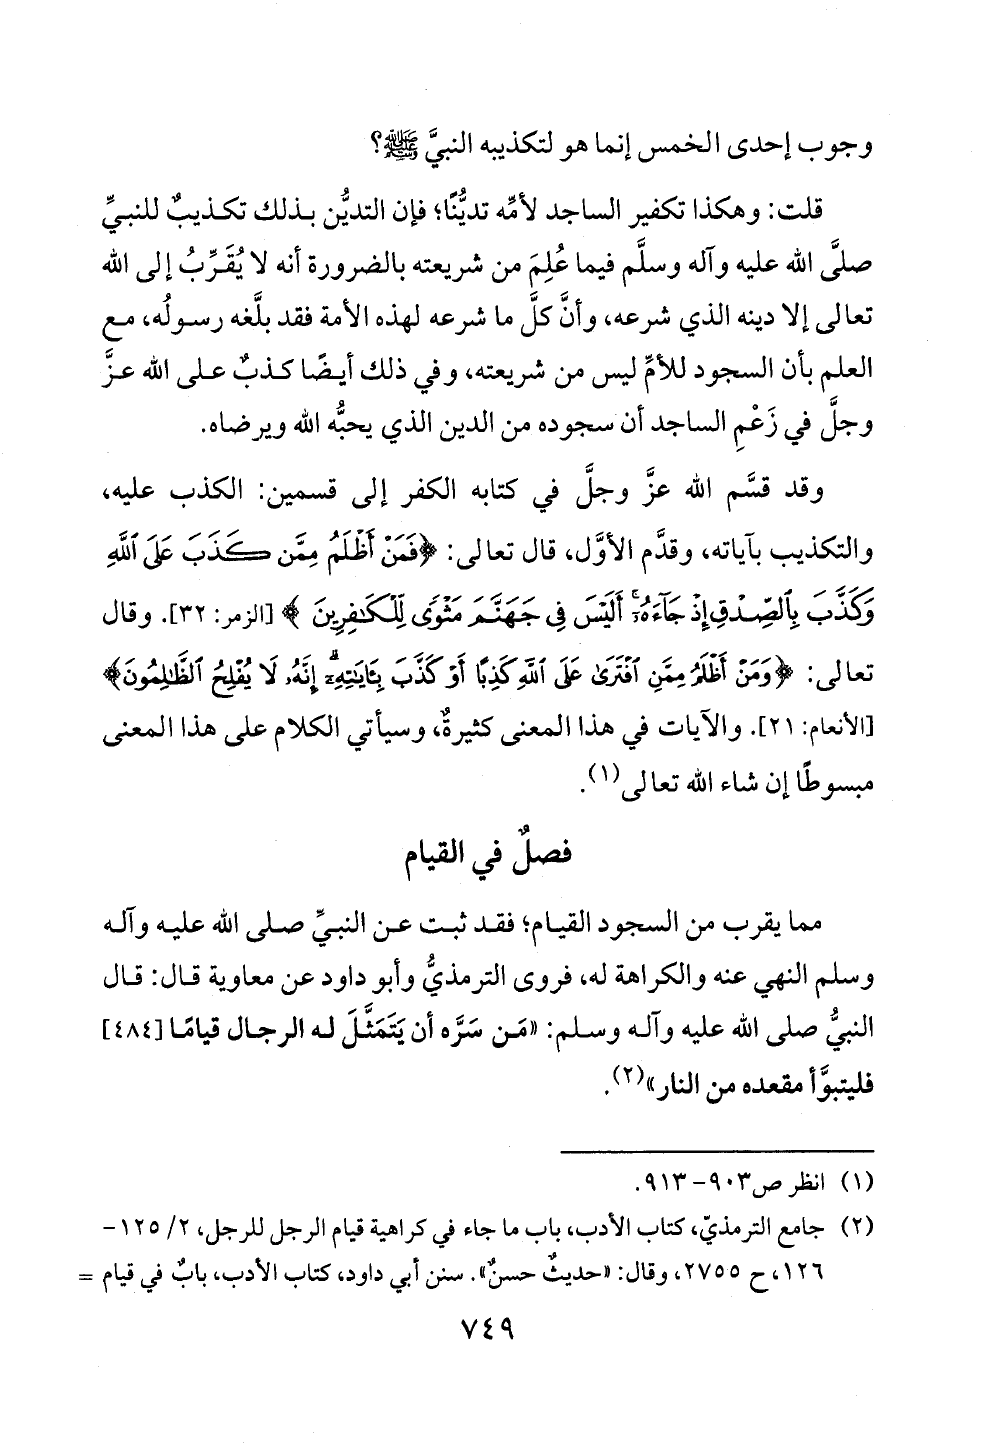 وجوب إحدى الخمس إنما هو لتكذيبه النبيَّ ﷺ؟
قلت: وهكذا تكفير الساجد لأمِّه تديُّنًا؛ فإن التديُّن بذلك تكذيبٌ للنبيِّ
صلَّى الله عليه وآله وسلَّم فيما عُلِمَ من شريعته بالضرورة أنه لا يُقَرِّبُ إلى الله
تعالى إلا دينه الذي شرعه، وأنَّ كلَّ ما شرعه لهذه الأمة فقد بلَّغه رسولُه، مع
العلم بأن السجود للأمِّ ليس من شريعته، وفي ذلك أيضًا كذبٌ على الله عزَّ
وجلَّ في زَعْمِ الساجد أن سجوده من الدين الذي يحبُّه الله ويرضاه.
وقد قسَّم الله عزَّ وجلَّ في كتابه الكفر إلى قسمين: الكذب عليه،
والتكذيب بآياته، وقدَّم الأوَّل، قال تعالى: ﴿فَمَنْ أَظْلَمُ مِمَّن كَذَبَ عَلَى ٱللَّهِ
وَكَذَّبَ بِٱلصِّدْقِ إِذْ جَآءَهُۥٓ أَلَيْسَ فِى جَهَنَّمَ مَثْوًى لِّلْكَٰفِرِينَ﴾ [الزمر: ٣٢]. وقال
تعالى: ﴿وَمَنْ أَظْلَمُ مِمَّنِ ٱفْتَرَىٰ عَلَى ٱللَّهِ كَذِبًا أَوْ كَذَّبَ بِـَٔايَٰتِهِۦٓ إِنَّهُۥ لَا يُفْلِحُ ٱلظَّٰلِمُونَ﴾
[الأنعام: ٢١]. والآيات في هذا المعنى كثيرةٌ، وسيأتي الكلام على هذا المعنى
مبسوطًا إن شاء الله تعالى(١).
فصلٌ في القيام
مما يقرب من السجود القيام؛ فقد ثبت عن النبيِّ صلى الله عليه وآله
وسلم النهي عنه والكراهة له، فروى الترمذيُّ وأبو داود عن معاوية قال: قال
النبيُّ صلى الله عليه وآله وسلم: «مَن سَرَّه أن يَتَمَثَّلَ له الرجال قيامًا [٤٨٤]
فليتبوَّأ مقعده من النار»(٢).
(١) انظر ص٩٠٣-٩١٣.
(٢) جامع الترمذيّ، كتاب الأدب، باب ما جاء في كراهية قيام الرجل للرجل، ٢/ ١٢٥-
١٢٦، ح ٢٧٥٥، وقال: «حديثٌ حسنٌ». سنن أبي داود، كتاب الأدب، بابٌ في قيام =
٧٤٩